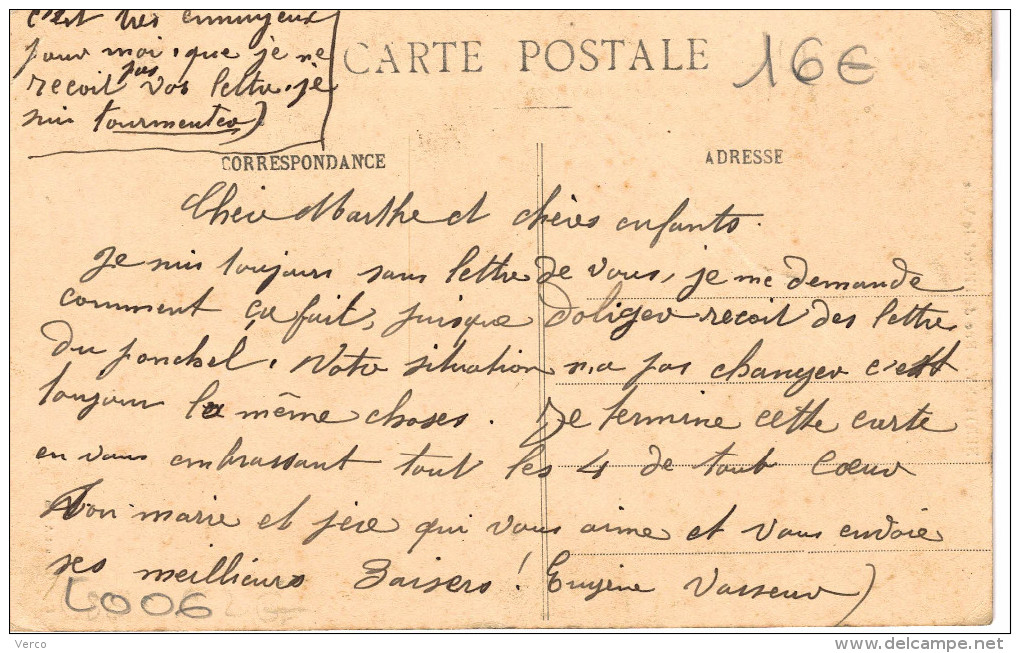 c'est très ennuyeux
pour moi, que je ne
recoit pas vos lettre. je
suis tourmenter)
CARTE POSTALE
16€
CORRESPONDANCE
ADRESSE
Cher Marthe et chères enfants.
Je suis toujours sans lettre de vous, je me demande
comment ça fait, puisque Doliger recoit des lettre
du ponchel. Notre situation n,a pas changer c'est
toujour la même choses. Je termine cette carte
en vous embrassant tout les 4 de tout coeur
Ton marie et père qui vous aime et vous envoie
ses meillieurs Baisers! Eugène Vasseur)
L006
Verco
www.delcampe.net